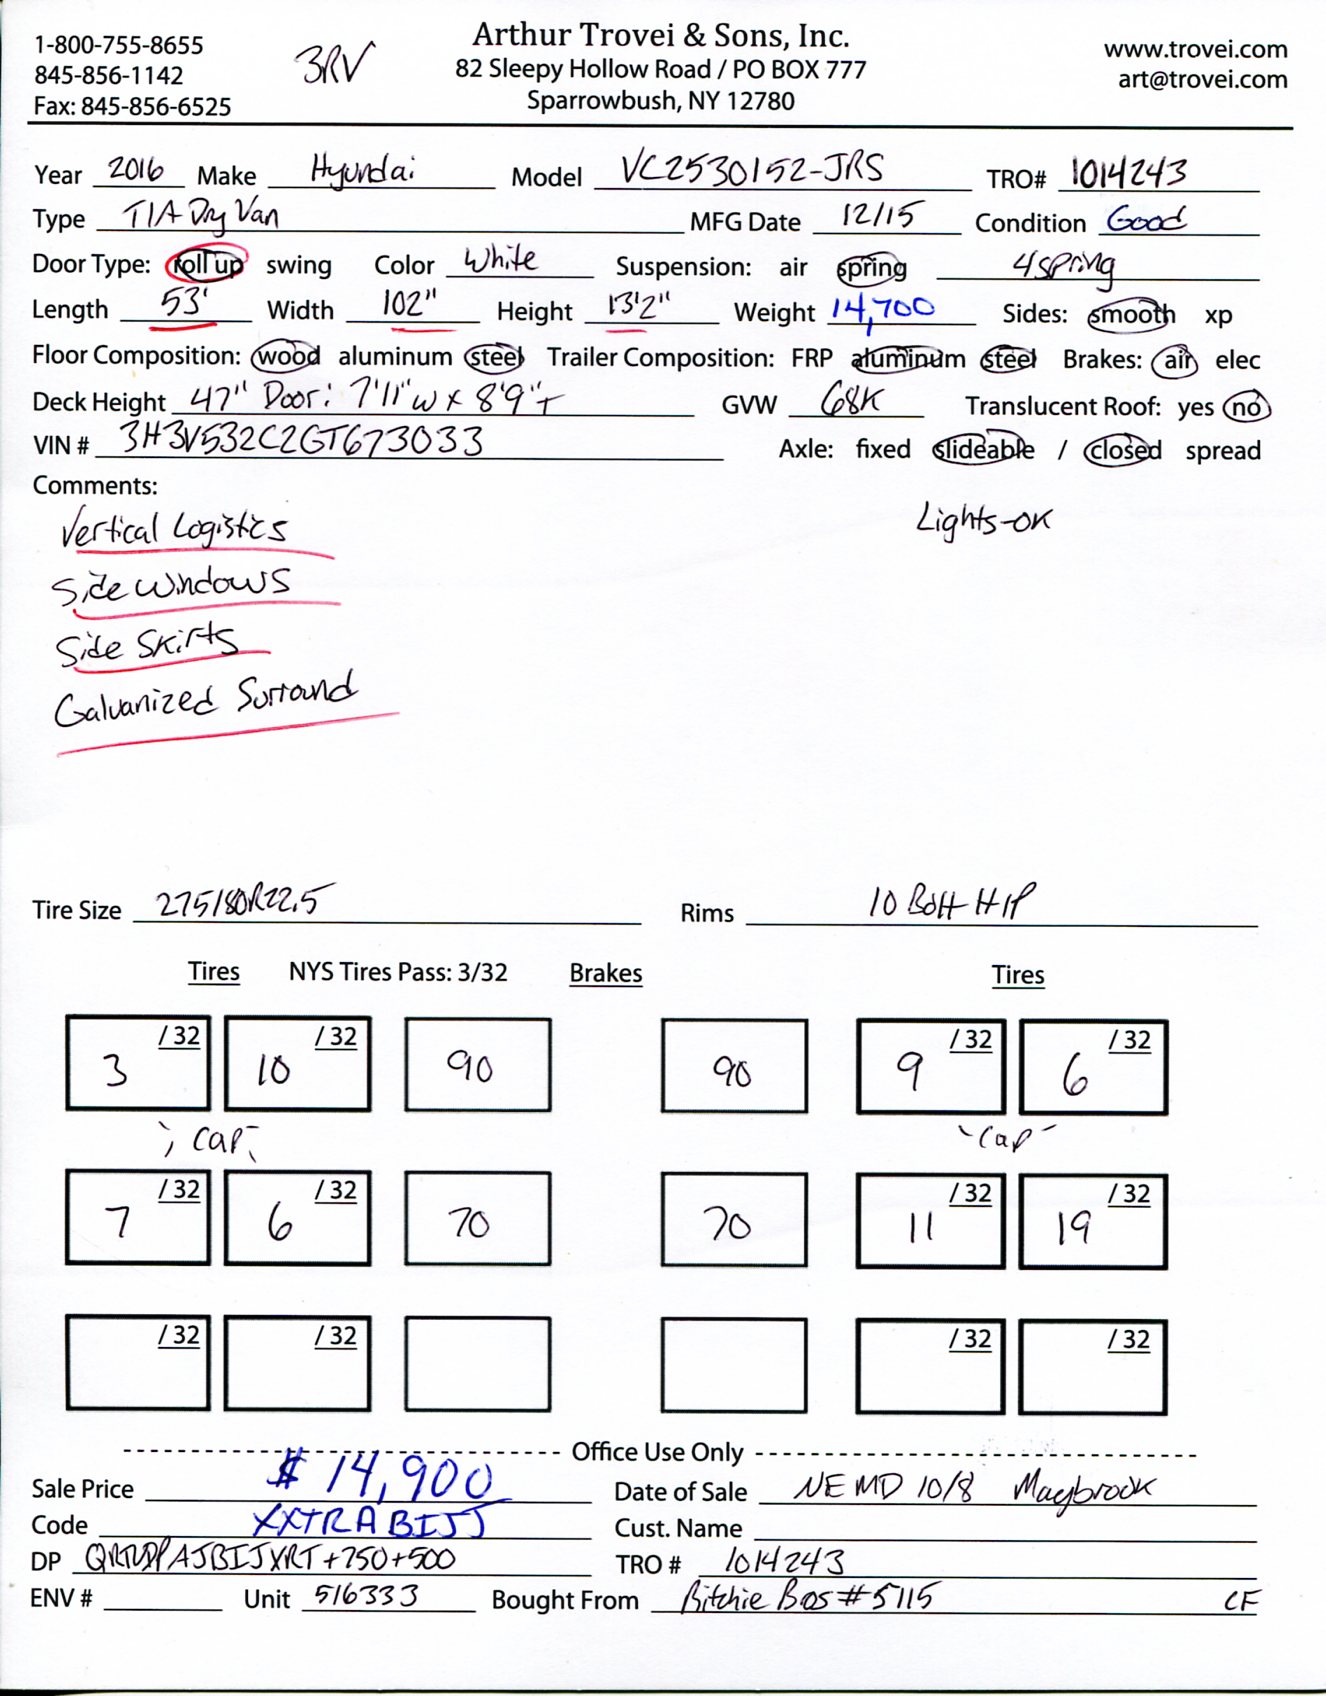 1-800-755-8655
845-856-1142
Fax: 845-856-6525
3RV
Arthur Trovei & Sons, Inc.
82 Sleepy Hollow Road / PO BOX 777
Sparrowbush, NY 12780
www.trovei.com
art@trovei.com
Year 2016 Make Hyundai Model VC2530152-JRS TRO# 1014243
Type T/A Dry Van MFG Date 12/15 Condition Good
Door Type: roll up swing Color White Suspension: air spring 4 spring
Length 53' Width 102" Height 13'2" Weight 14,700 Sides: smooth xp
Floor Composition: wood aluminum steel Trailer Composition: FRP aluminum steel Brakes: air elec
Deck Height 47" Door: 7'11"W x 8'9"T GVW 68K Translucent Roof: yes no
VIN # 3H3V532C2GT673033 Axle: fixed slideable / closed spread
Comments:
Vertical Logistics
Lights-OK
Side Windows
Side Skirts
Galvanized Surround
Tire Size 275/80R22.5 Rims 10 Bolt H/P
Tires NYS Tires Pass: 3/32 Brakes Tires
3 /32 10 /32 90 90 9 /32 6 /32
Cap Cap
7 /32 6 /32 70 70 11 /32 19 /32
/32 /32 /32 /32
Office Use Only
Sale Price $14,900 Date of Sale NEMD 10/8 Maybrook
Code XXTRABIJJ Cust. Name
DP +750+500 TRO # 1014243
ENV # Unit 516333 Bought From Ritchie Bros #5115 CF